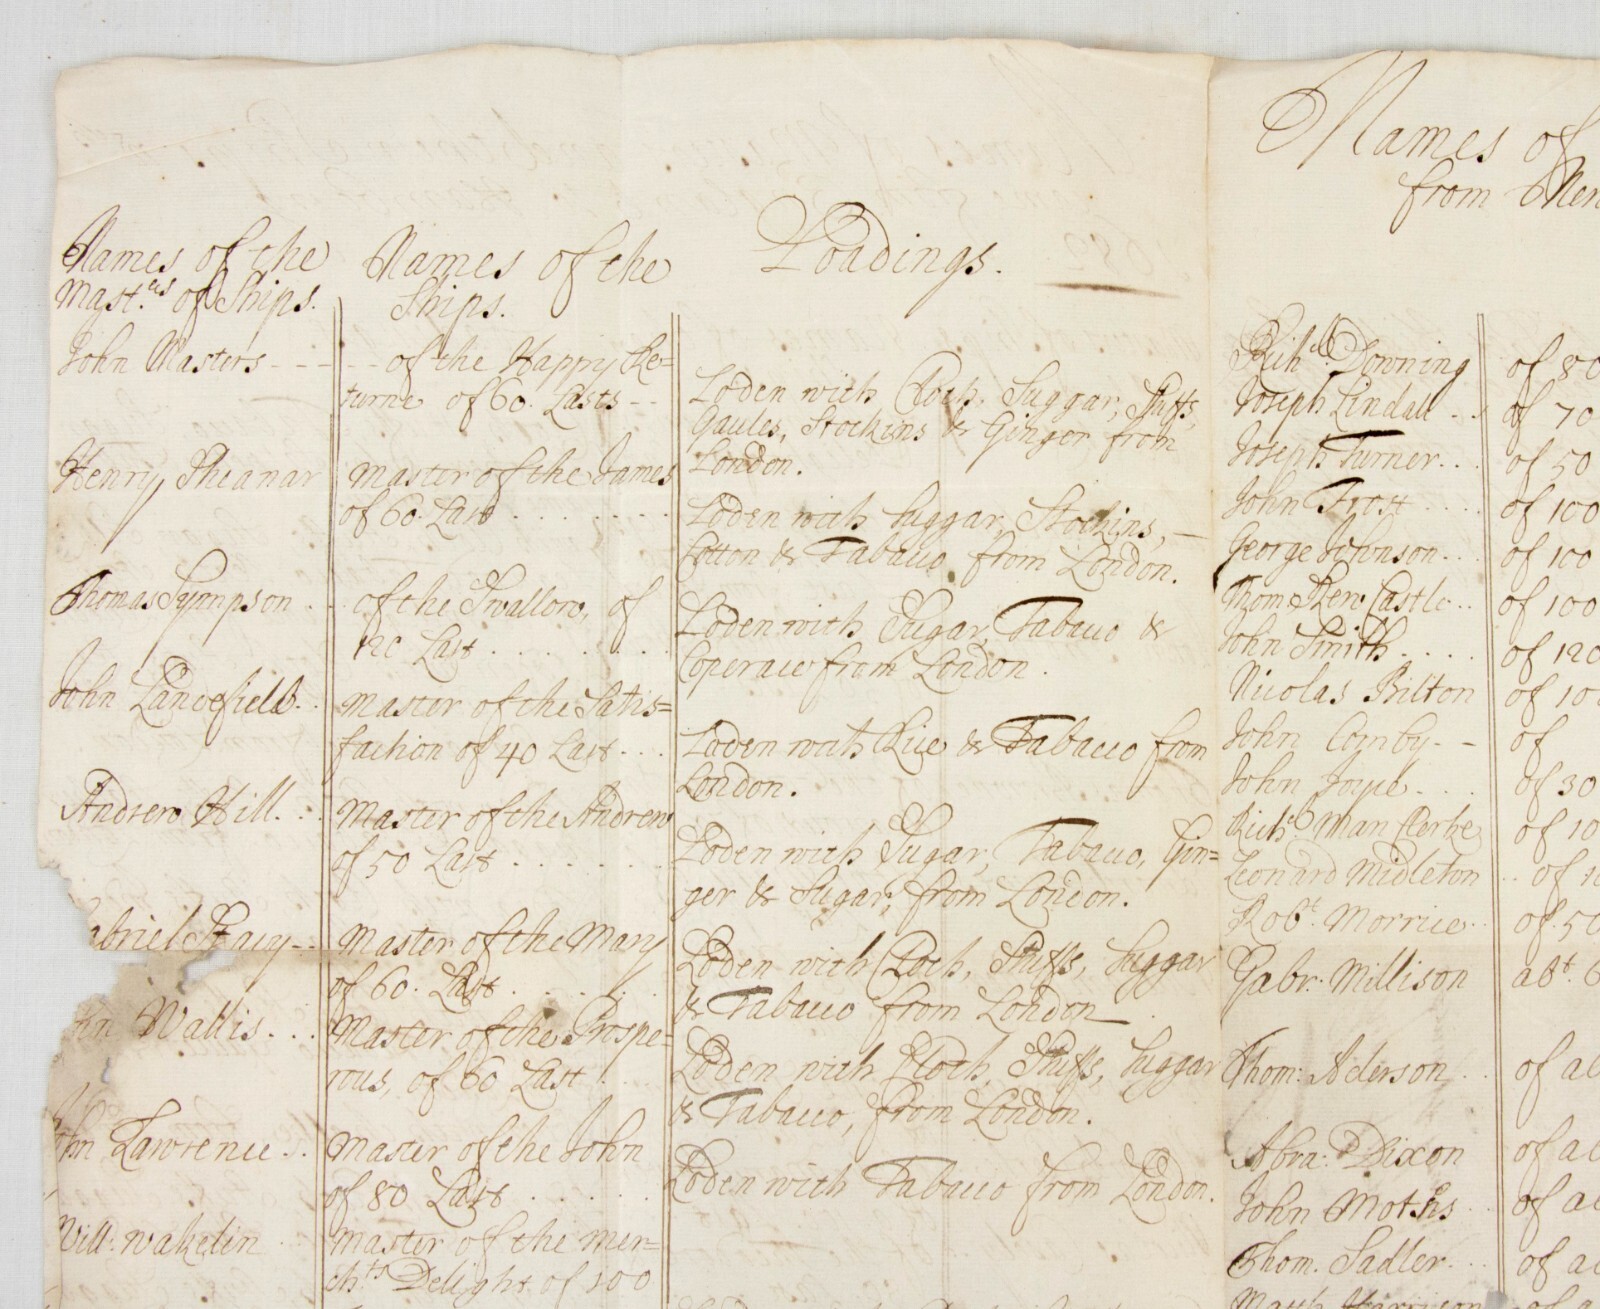 Names of the
Mast.ers of Ships.
Names of the
Ships.
Loadings.
John Masters - - -
- - of the Happy Re=
turne of 60. Lasts - -
Loden with Cloth. Suggar, Stuffs,
Gaules, Stockins & Ginger from
London.
Henry Pheanar
Master of the James
of 60. Last . . . . . . .
Loden with Suggar, Stockins, -
Cotton & Tabacco from London.
Thomas Sympson . .
of the Swallow, of
120 Last . . . . . . .
Loden with Sugar, Tabacco &
Coperace from London.
John Landefield. .
Master of the Satis=
faction of 40 Last . . .
Loden with Rice & Tabacco from
London.
Andrew Hill. . .
Master of the Andrew
of 50 Last . . . . . .
Loden with Sugar, Tabacco, Gin=
ger & Sugar, from London.
abriel Stacy - -
Master of the Mary
of 60. Last . . . . . .
Loden with Cloth, Stuffs, Suggar
& Tabacco from London
hn Wallis. . . .
Master of the Prospe=
rous, of 60 Last . .
Loden with Cloth, Stuffs, Suggar
& Tabacco, from London.
hn Lawrence . .
Master of the John
of 80 Last . . . . . .
Loden with Tabacco from London.
Will: Wakelin
Master of the Mer=
chts Delight of 100
Names of
from
Richd Downing of 80
Joseph Lindall . . of 70
Joseph Turner. . . of 50
John Frost . . . . of 100
George Johnson. . . of 100
Thom New Castle . . of 100
John Smith . . . . of 120
Nicolas Bilton of 10
John Comby - - of
John . . . of 30
Richd Man Clerke of 10
Leonard Midleton . . of 1
Robt Morrice . . of 50
Gabr: Millison abt 6
Thom: Aderson . . of a
Abra: Dixon of a
John . . of a
Thom. Sadler. . . of a
Matth Harrison of a